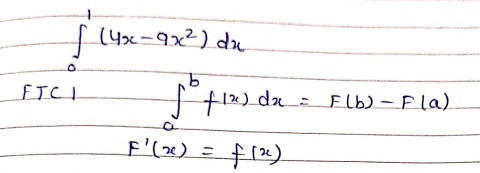 ∫₀¹ (4x-9x²) dx
FTC 1 ∫ₐᵇ f(x) dx = F(b) - F(a)
F'(x) = f(x)